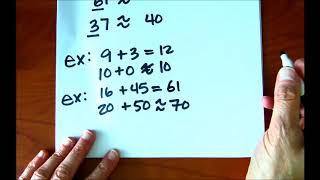 61 ≈
37 ≈ 40
ex: 9 + 3 = 12
10 + 0 ≈ 10
ex: 16 + 45 = 61
20 + 50 ≈ 70